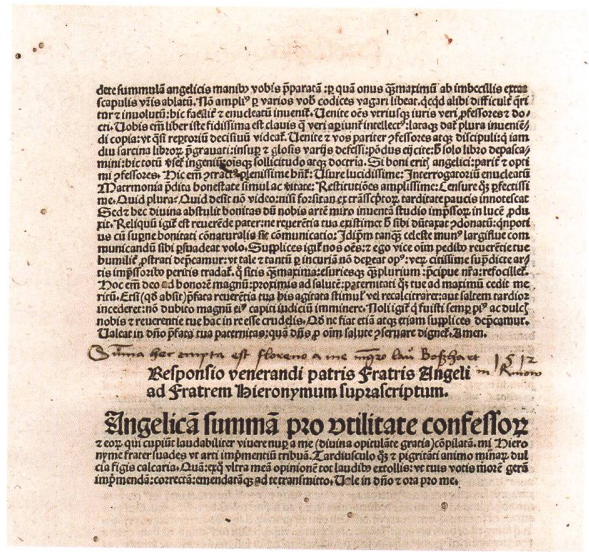 dete summulã angelicis manibꝰ vobis p̃paratã: ꝑ quã onus q̃ꝫmaximũ ab imbecillis
scapulis vr̃is ablatũ. Nõ ampliꝰ ꝑ varios vob̃ codices vagari libeat. qcqd alibi difficult̃ q̃ri
tur ⁊ inuolutũ: hic facilit̃ ⁊ enucleatũ inuenit̃. Uenite oẽs vtriusqꝫ iuris veri ꝓfessores ⁊ do-
cti. Uobis em̃ liber iste fidissima est clauis q̃ veri apiunt̃ intellectꝰ:
di copia: vt qsi repꝛtoriũ decisiuũ videat̃. Uenite ⁊ vos pariter ꝓfessores atqꝫ discipuli: q̃ iam
diu sarcina libroꝝ grauati: insuꝑ ⁊ glosis varijs defessi: põdus eijcite: h̃ solo libro depasca-
mini: hic totꝰ vr̃e ingeniũ: oisqꝫ sollicitudo atqꝫ doctria. Si boni eritꝭ angelici: parit̃ ⁊ opti
mi ꝓfessores. Hic em̃ plenissime h̃nt̃: Usure lucidissime: Interrogatoriũ enucleatũ
Matrimonia p̃dita honestate simul ac vtitate: Restitutiões amplissime: Censure q̃ꝫ ꝑfectissi
me. Quid plura? Quid desit nõ video: nisi forsitan ex trãscptoꝝ tarditate paucis innotescat
Sed ⁊ hec diuina abstulit bonitas dũ nobis artẽ miro inuentã studio imp̃ssoꝝ in lucẽ ꝓdu
xit. Reliquũ igit̃ est reuerẽde pater: ne reuerẽtia tua existimet h̃ sibi dũtaxat ꝯdonatũ:
us cũ supne bonitati cõnaturalis sit cõmunicatio: Idip̃m tanqꝫ celeste munꝰ largissime com
municandũ sibi ꝑsuadeat volo. Supplices igit̃ nos oẽs: ⁊ ego vice oim̃ pedibꝰ reuerẽtie tue
humilit̃ ꝓstrati dep̃camur: vt tale ⁊ tantũ ꝑ incuriã nõ depeat opꝰ: veꝝ citissime supdicte ar-
tis imp̃ssoribꝰ peritis tradat̃.
Hoc em̃ deo ad honorẽ magnũ: proximis ad salutẽ: paternitati q̃ꝫ tue ad maximũ cedit me
ritũ. Etsi (qd̃ absit) p̃fata reuerẽtia tua his agitata stimulꝭ vel recalcitraret: aut saltem tardior
incederet: nõ dubito magnũ eiꝰ capiti iudiciũ imminere. Noli igit̃ q̃ fuisti semꝑ piꝰ ac dulcꝭ
nobis ⁊ reuerentie tue hac in re esse crudelis. Qd̃ ne fiat etiã atqꝫ etiam supplices dep̃camur.
Ualeat in dño p̃fata tua paternitas: quã dñs ꝓ oim̃ salute ꝯseruare dignet̃. Amen.
Sũma hec empta est floreno a me mgr̃o lau Boßhart 1512
Responsio venerandi patris Fratris Angeli
ad Fratrem Hieronymum suprascriptum.
Angelicã summã pro vtilitate confessoꝝ
⁊ eoꝝ qui cupiũt laudabiliter viuere nuꝑ a me (diuina opitulãte gratia) cõpilatã. mi Hiero
nyme frater suades vt arti imp̃mentiũ tribuã. Tardiusculo q̃ꝫ ⁊ pigritãti animo minaꝝ dul
cia figis calcaria. Quã: et q̃ vltra meã opinionẽ tot laudibꝰ extollis: vt tuis votis morẽ gerã
imp̃mendã: correctã: emendatãqꝫ ad te transmitto. Uale in dño ⁊ ora pro me.